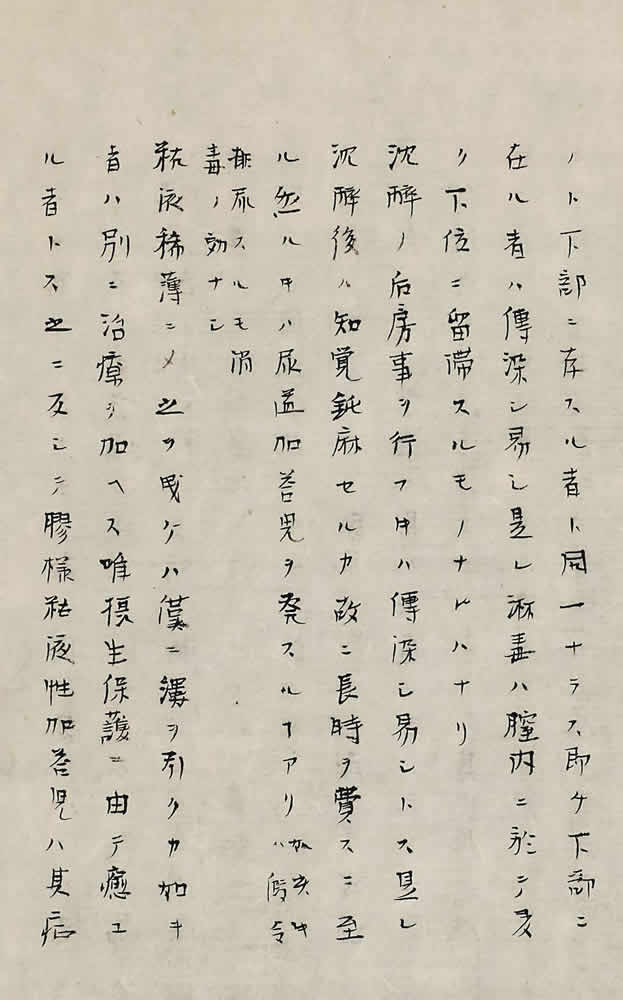 ノト下部ニ存スル者ト同一ナラス即チ下部ニ
在ル者ハ傳染シ易シ是レ淋毒ハ膣内ニ於テ其
ノ下位ニ留滞スルモノナレハナリ
沈醉ノ后房事ヲ行フ𪜈ハ傳染シ易シトス是レ
沉醉後ハ知覚鈍麻セルカ故ニ長時ヲ費スニ至
ル然ル𪜈ハ尿道加答児ヲ発スルヿアリ
ハ假令
排尿スルモ消
毒ノ効ナシ
粘液稀薄ニ〆之ヲ曳ケハ僅ニ縷ヲ引クカ如キ
者ハ別ニ治療ヲ加ヘス唯摂生保護ニ由テ癒ユ
ル者トス之ニ反シテ膠様粘液性加答児ハ其症